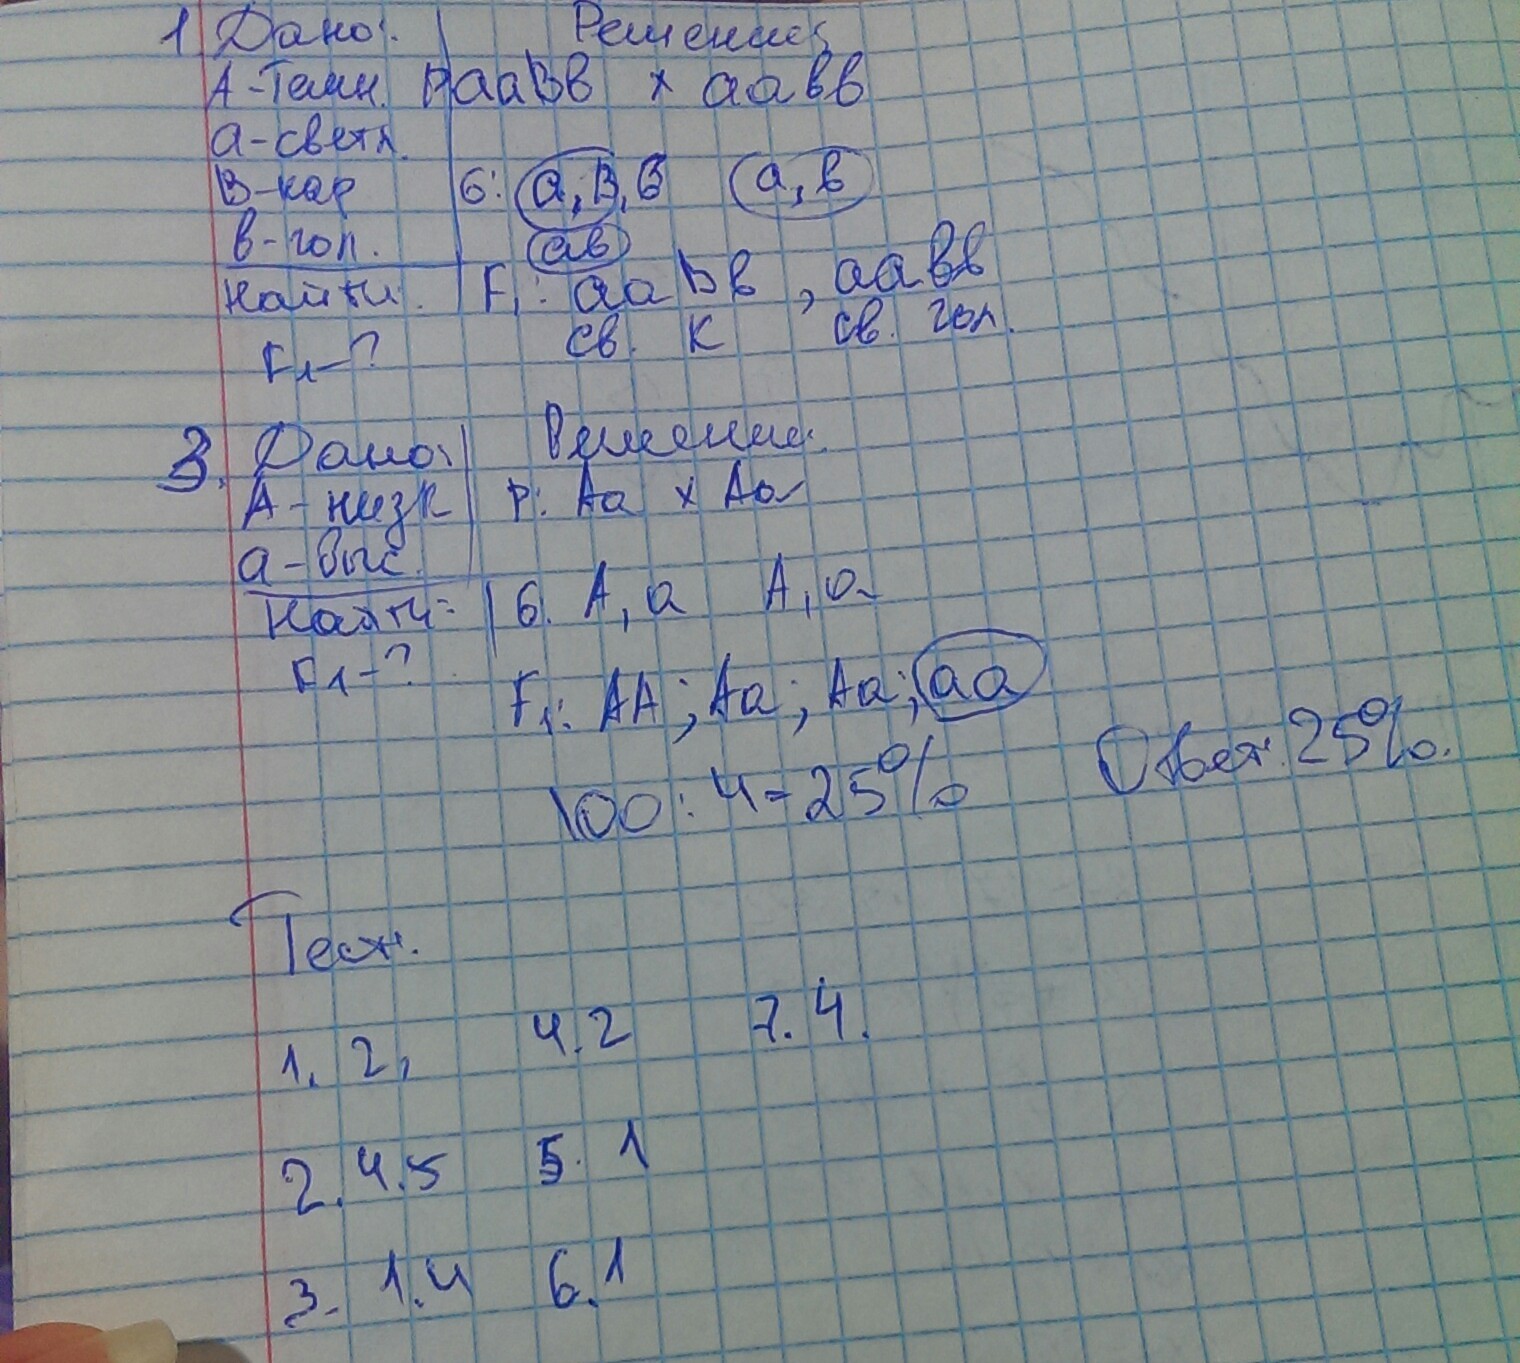 1. Дано: Решение:
А-темн. Р ааВв х аавв
а-светл.
В-кар G: а,В,в а,в
в-гол. ав
Найти: F1: ааВв, аавв
F1-? св. К св. гол.
3. Дано: Решение:
А-низк Р: Аа х Аа
а-выс.
Найти: G. А,а А,а
F1-? F1: АА; Аа; Аа; аа
100:4=25% Ответ: 25%.
Тест.
1. 2, 4.2 7.4.
2.4.5 5.1
3. 1.4 6.1